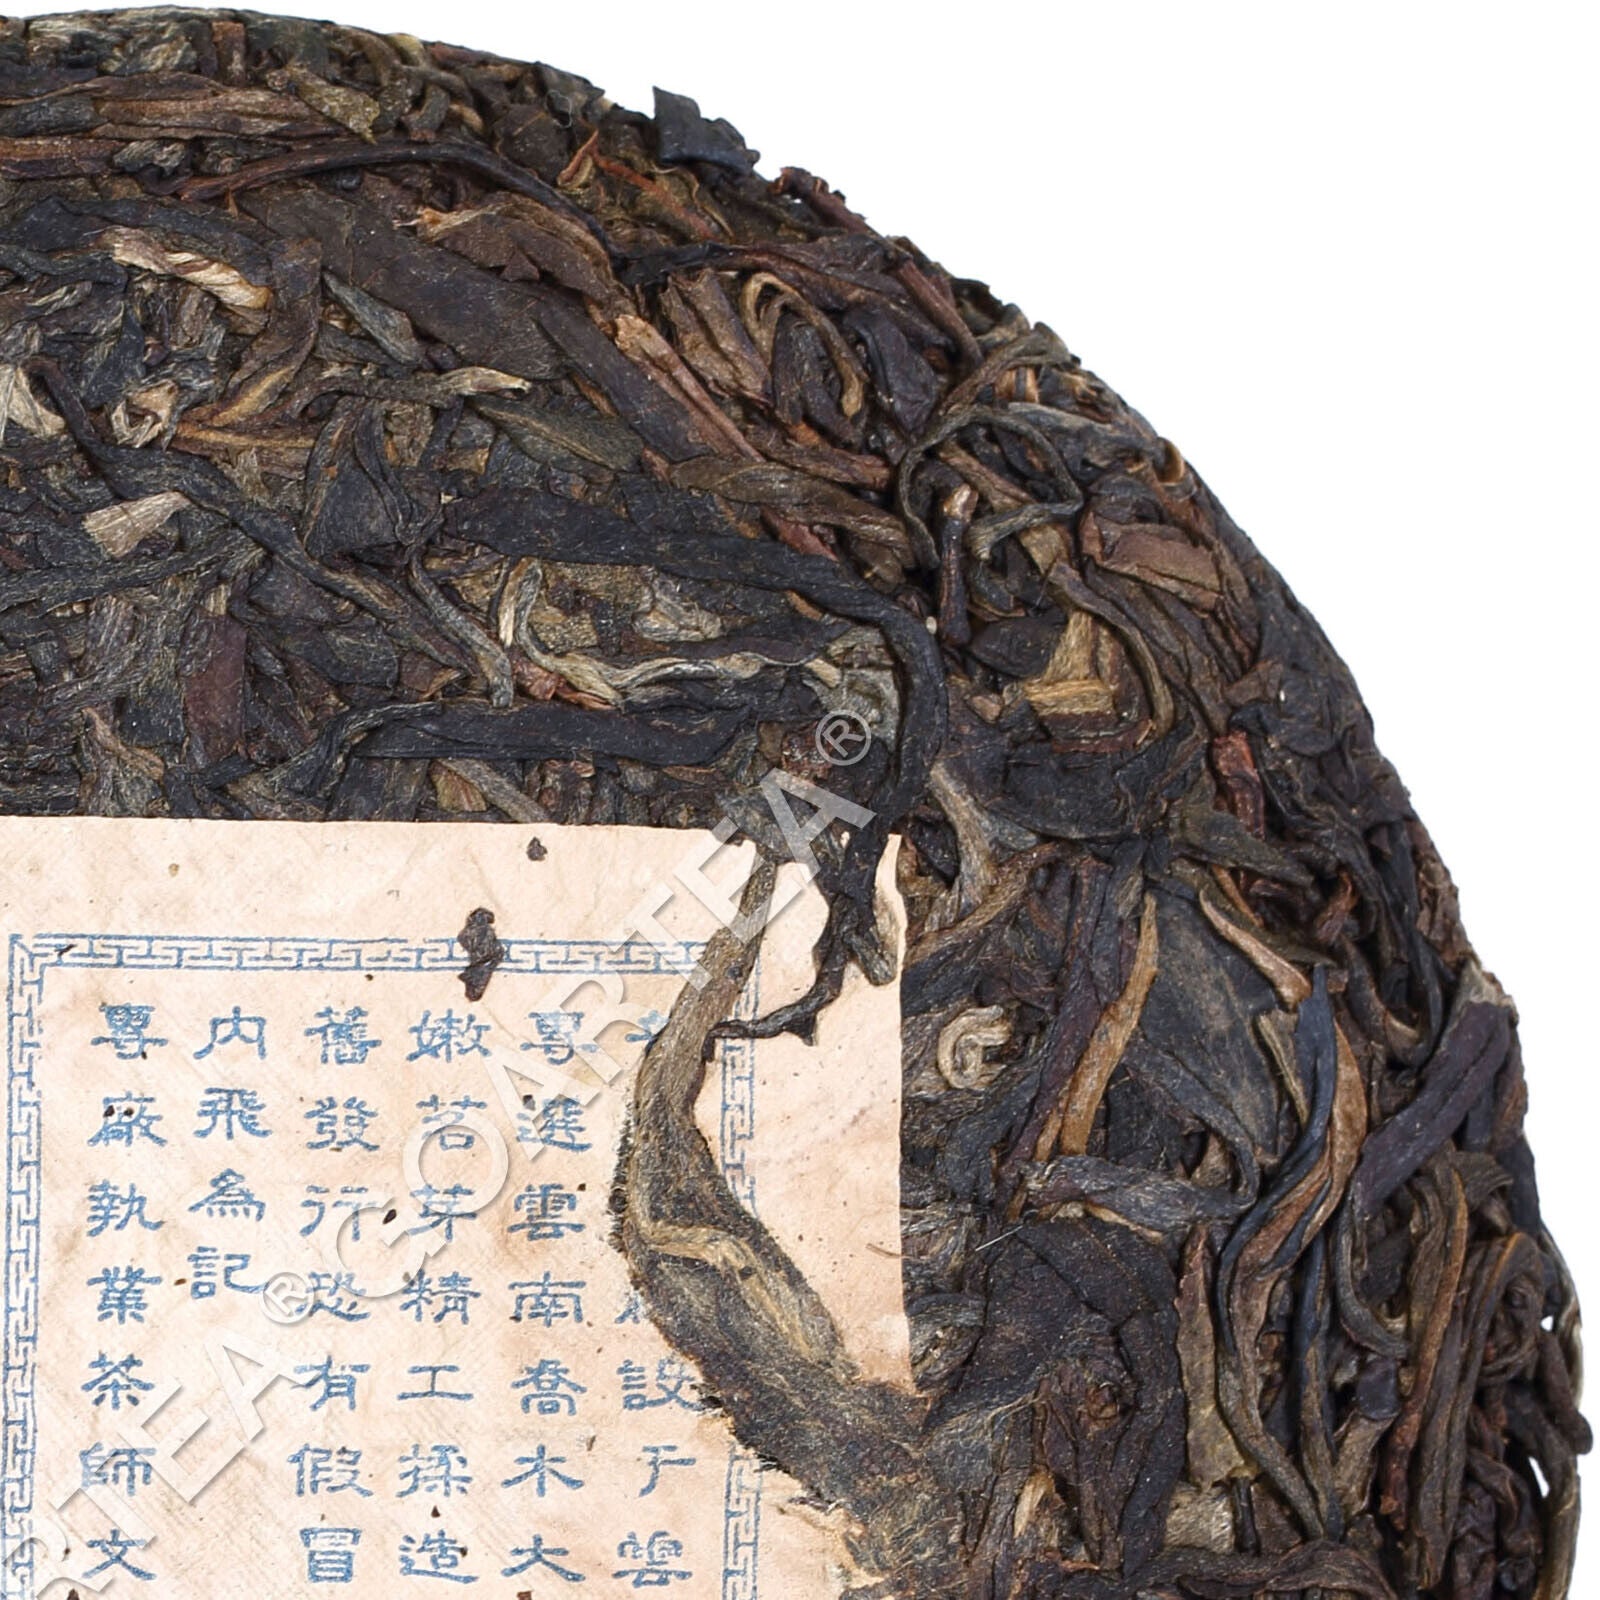 設于
專選雲南喬木大
嫩茗芽精工揉造
舊發行恐有假冒
內飛為記
專廠執業茶師文
GOARTEA®
RTEA®